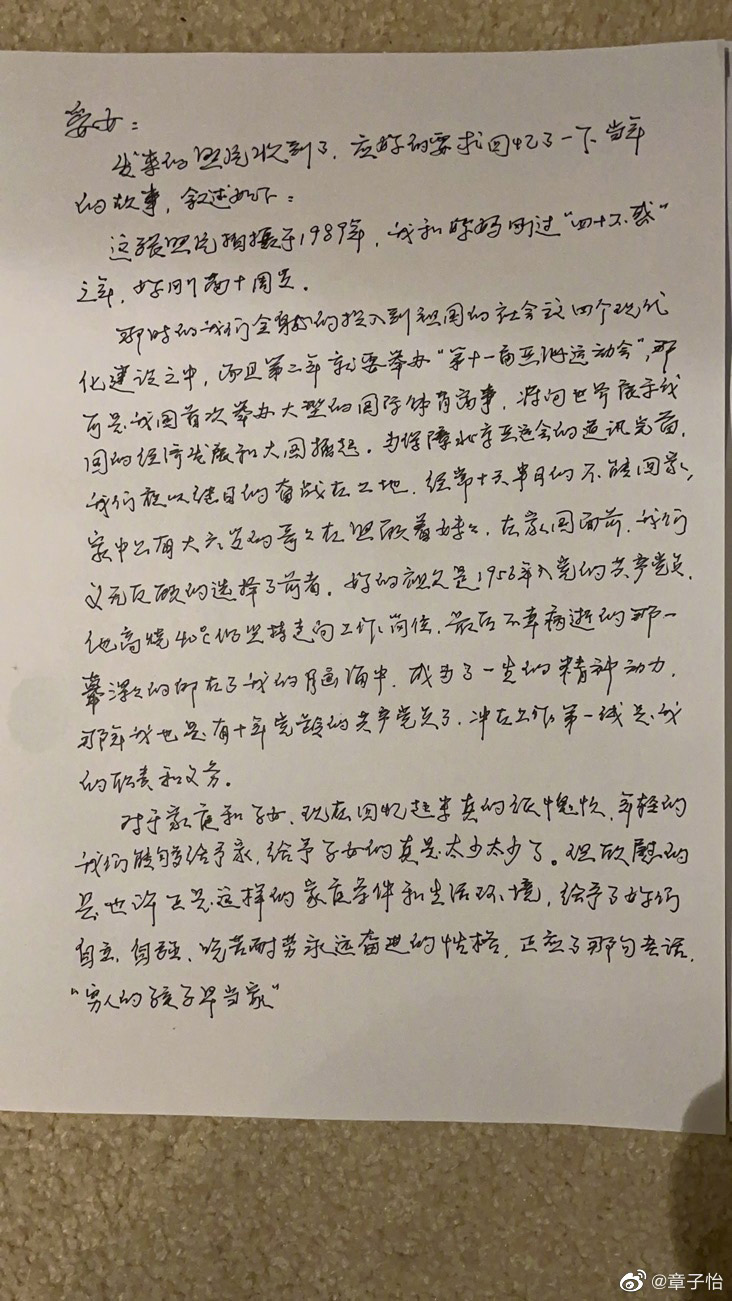 爱女：
发来的照片收到了，应好的要求回忆了一下当年
的故事，叙述如下：
这张照片拍摄于1989年，我和你妈刚过“四十不惑”
之年，好刚满十周岁。
那时的我们全身心的投入到祖国的社会主义四个现代
化建设之中，而且第二年就要举办“第十一届亚洲运动会”，那
可是我国首次举办大型的国际体育赛事，将向世界展示我
国的经济发展和大国崛起。为保障北京亚运会的通讯完善，
我们夜以继日的奋战在工地，经常十天半月的不能回家，
家中只有大六岁的哥哥在照顾着妹妹，在家国面前，我们
义无反顾的选择了前者。好的祖父是1953年入党的共产党员，
他高烧40℃仍坚持走向工作岗位，最后不幸病逝的那一
幕深深的印在了我的脑海中，成为了一生的精神动力，
那年我也是有十年党龄的共产党员了，冲在工作第一线是我
的职责和义务。
对于家庭和子女，现在回忆起来真的很愧疚，年轻的
我们能够给予家，给予子女的真是太少太少了。但欣慰的
是也许正是这样的家庭条件和生活环境，给予了好们
自立、自强、吃苦耐劳永远奋进的性格，正应了那句老话，
“穷人的孩子早当家”
@章子怡